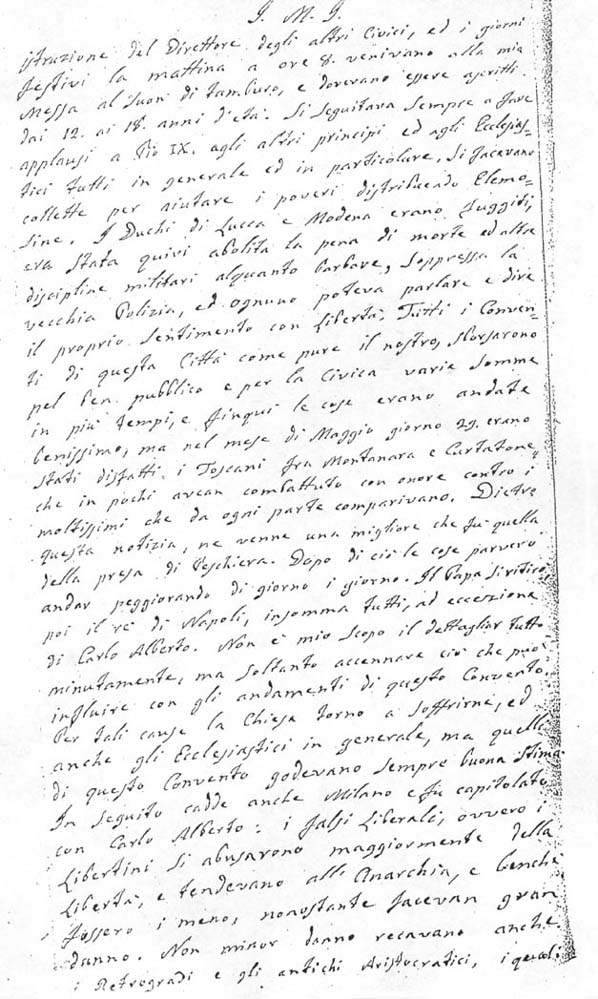 J. M. J.
istruzione del Direttore degli altri Civici, ed i giorni
festivi la mattina a ore 8. venivano alla mia
Messa al suon di tamburo, e dovevano essere ascritti
dai 12. ai 18. anni d'età. Si seguitava sempre a fare
applausi a Pio IX. agli altri principi ed agli Ecclesias=
tici tutti in generale ed in particolare, si facevano
collette per aiutare i poveri distribuendo Elemo=
sine. I Duchi di Lucca e Modena erano fuggiti,
era stata quivi abolita la pena di morte ed altre
discipline militari alquanto barbare, soppressa la
vecchia Polizia, ed ognuno poteva parlare e dire
il proprio sentimento con libertà. Tutti i Conven=
ti di questa Città come pure il nostro, sborsarono
pel ben pubblico e per la Civica varie somme
in più tempi, e finqui le cose erano andate
benissimo, ma nel mese di Maggio giorno 29. erano
stati disfatti i Toscani fra Montanara e Curtatone,
che in pochi avean combattuto con onore contro i
moltissimi che da ogni parte comparivano. Dietro
questa notizia, ne venne una migliore che fu quella
della presa di Peschiera. Dopo di ciò le cose parvero
andar peggiorando di giorno i giorno. Il Papa si ritirò,
poi il re di Napoli, insomma tutti, ad eccezione
di Carlo Alberto. Non è mio scopo il dettagliar tutto
minutamente, ma soltanto accennare ciò che può
influire con gli andamenti di questo Convento.
Per tali cause la Chiesa tornò a soffrirne, ed
anche gli Ecclesiastici in generale, ma quelli
di questo Convento godevano sempre buona stima.
In seguito cadde anche Milano e fu capitolato
con Carlo Alberto: i falsi Liberali, ovvero i
Libertini si abusarono maggiormente della
Libertà, e tendevano all'Anarchia, e benché
fossero i meno, nonostante facevan gran
danno. Non minor danno recavano anche
i Retrogradi e gli antichi Aristocratici, i quali